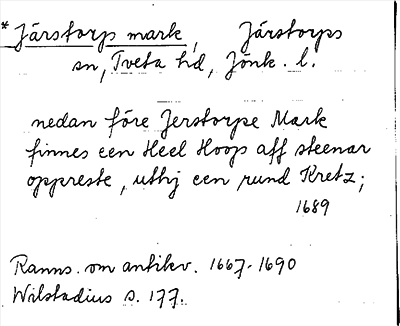 * Järstorp mark, Järstorps
sn, Tveta hd, Jönk. l.
nedan före Jerstorpe Mark
finnes een Heel Hoop aff steenar
oppreste, uthj een rund Kretz;
1689
Ranns. om antikv. 1667-1690
Wilstadius s. 177.